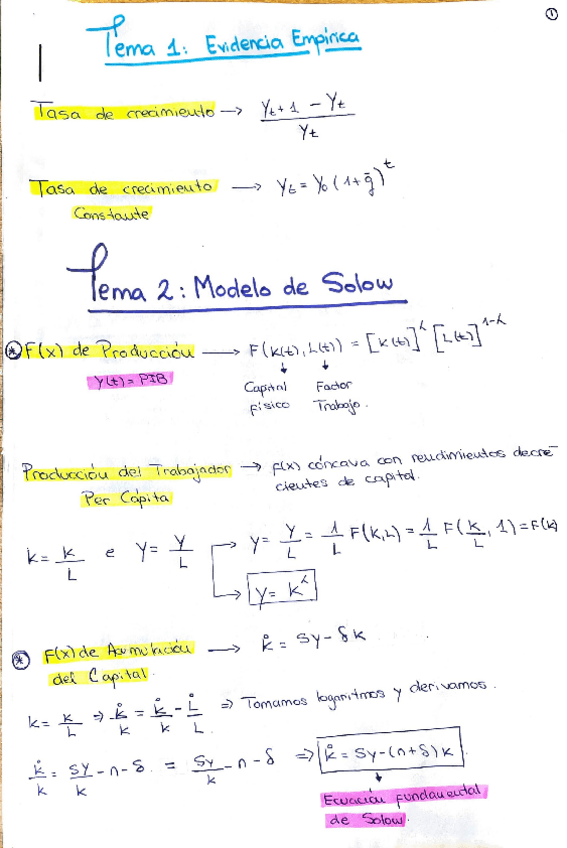 1
Tema 1: Evidencia Empírica
Tasa de crecimiento → (Yt+1 - Yt) / Yt
Tasa de crecimiento → Yt = Y0 (1+ḡ)^t
Constante
Tema 2: Modelo de Solow
* F(x) de Producción → F(K(t), L(t)) = [K(t)]^α [L(t)]^1-α
Y(t) = PIB
Capital Factor
Físico Trabajo.
Producción del Trabajador → f(x) cóncava con rendimientos decre
Per Cápita cientes de capital.
k = K/L e y = Y/L → y = Y/L = 1/L F(K,L) = 1/L F(K/L, 1) = F(k)
→ y = k^α
* F(x) de Acumulación → k̊ = sy - δk
del Capital.
k = K/L ⇒ k̊/k = K̊/K - L̊/L ⇒ Tomamos logaritmos y derivamos.
k̊/k = sY/K - n - δ = sy/k - n - δ ⇒ k̊ = sy - (n+δ)k
Ecuación fundamental
de Solow.